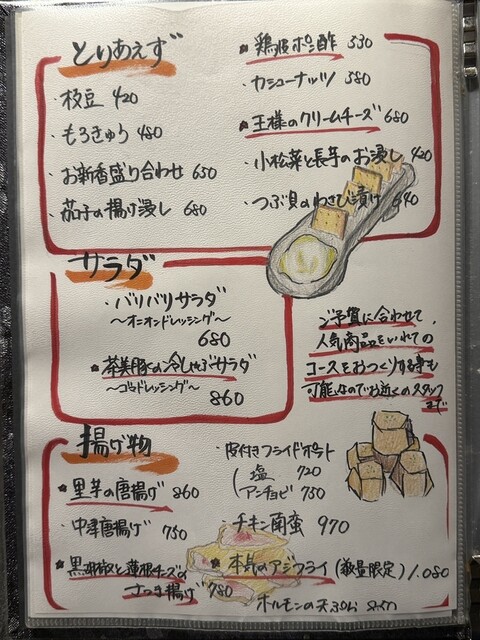 とりあえず
・枝豆 420
・もろきゅう 480
・お新香盛り合わせ 650
・茄子の揚げ浸し 680
★鶏皮ポン酢 530
・カシューナッツ 580
★王様のクリームチーズ 680
・小松菜と長芋のお浸し 420
・つぶ貝のわさび漬け 640
サラダ
・バリバリサラダ
〜オニオンドレッシング〜
680
★茶美豚の冷しゃぶサラダ
〜ごまドレッシング〜
860
ご予算に合わせて、
人気商品をいれての
コースをおつくりする事も
可能なのでお近くのスタッフ
まで
揚げ物
★里芋の唐揚げ 860
・中津唐揚げ 750
★黒胡椒と蓮根チーズの
さつま揚げ 780
・皮付きフライドポテト
塩 720
アンチョビ 750
・チキン南蛮 970
★本気のアジフライ(数量限定) 1.080
ホルモンの天ぷら